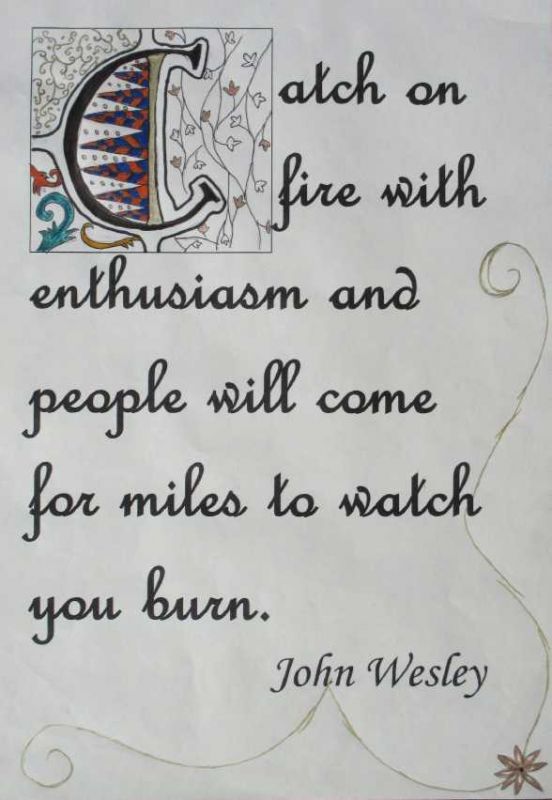 Catch on
fire with
enthusiasm and
people will come
for miles to watch
you burn.
John Wesley